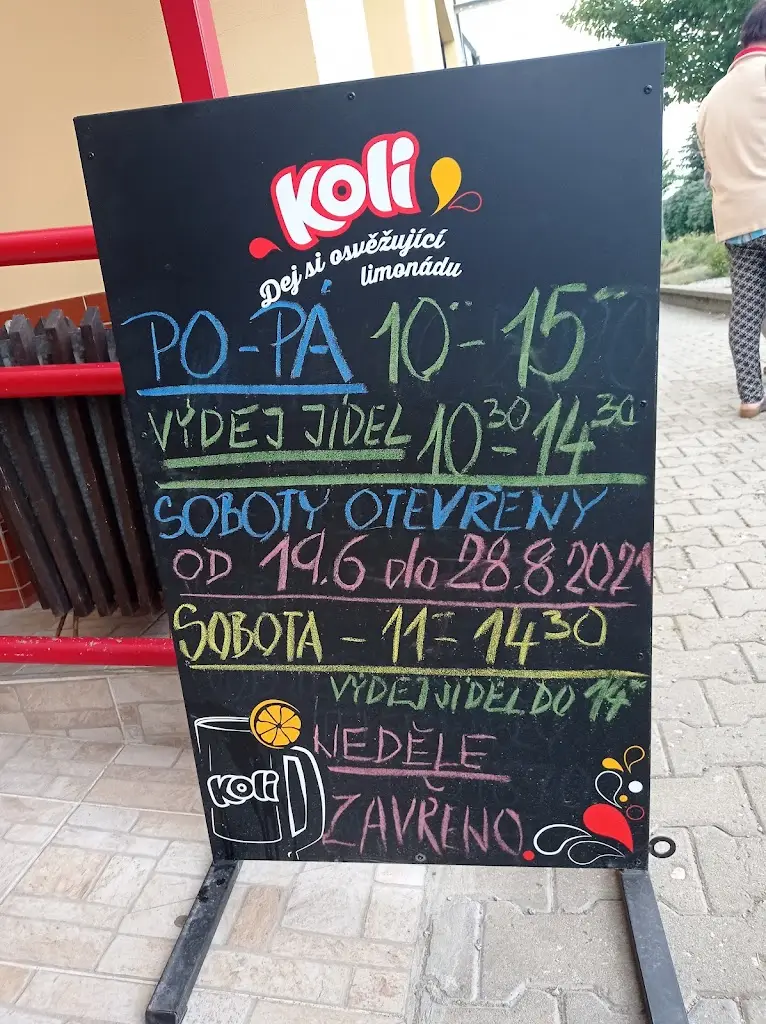 Koli
Dej si osvěžující
limonádu
PO-PÁ 10⁰⁰-15⁰⁰
VÝDEJ JÍDEL 10³⁰-14³⁰
SOBOTY OTEVŘENY
OD 19.6 do 28.8.2021
SOBOTA - 11 - 14³⁰
VÝDEJ JÍDEL DO 14⁰⁰
NEDĚLE
ZAVŘENO
Koli